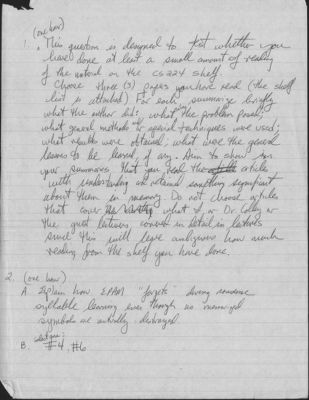 (one hour)
1. This question is designed to test whether you
have done at least a small amount of reading
of the material on the CS224 shelf.
Choose three (3) papers you have read (the shelf
list is attached) For each, summarize briefly
what the author did: what the problem posed;
what general methods and special techniques were used;
what results were obtained; what were the general
lessons to be learned, if any. Aim to show in
your summaries that you read the articles
with understanding and retained something significant
about them in memory. Do not choose articles
that cover what I or Dr Colby or
the guest lecturers covered in detail in lectures
since this will leave how much
reading from the shelf you have done.
2. (one hour)
A. Explain how EPAM "forgets" during nonsense
syllable learning even though no memorized
symbols are actually destroyed.
select one:
B. #4, #6